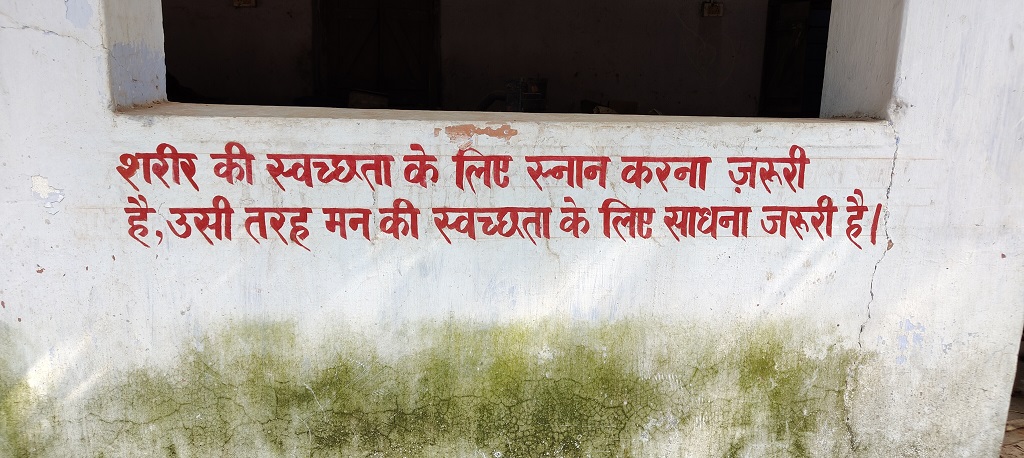 शरीर की स्वच्छता के लिए स्नान करना ज़रूरी
है, उसी तरह मन की स्वच्छता के लिए साधना जरूरी है।